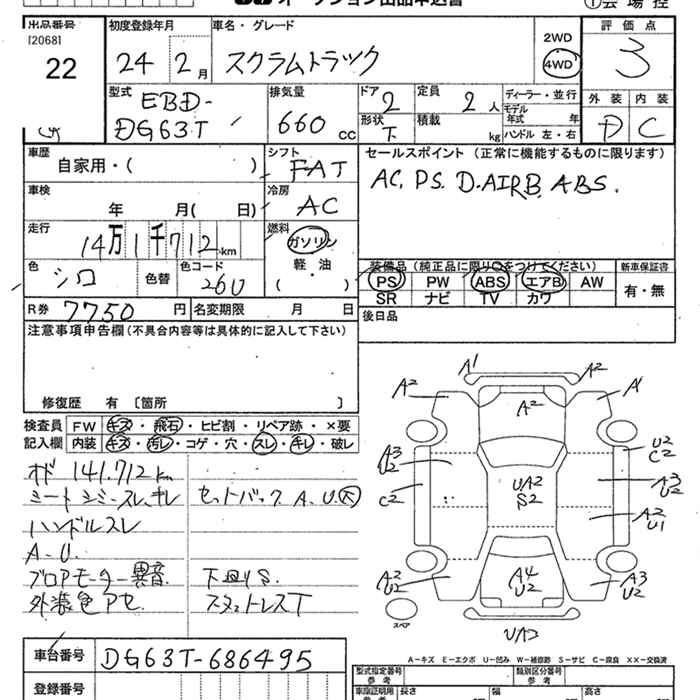 オークション出品申込書 ①会場控
出品番号 初度登録年月 車名・グレード 評価点
[2068] 22 24 2月 スクラムトラック 2WD 4WD 3
型式 EBD-DG63T 排気量 660 cc ドア 2 定員 2人 ディーラー・並行 外装 内装
形状 下 積載 kg モデル年式 年 ハンドル 左・右 D C
車歴 自家用・( ) シフト FAT セールスポイント (正常に機能するものに限ります)
車検 年 月( 日) 冷房 AC AC, PS, D.AIRB, ABS.
走行 14万1千712km 燃料 ガソリン 軽・油 ( )
色 シロ 色替 色コード 26U 装備品 (純正品に限り○をつけてください) 新車保証書
PS PW ABS エアB AW 有・無
SR ナビ TV カワ
R券 7750円 名変期限 月 日 後日品
注意事項申告欄(不具合内容等は具体的に記入して下さい)
修復歴 有 〔箇所 〕
検査員 FW キズ・飛石・ヒビ割・リペア跡・×要
記入欄 内装 キズ・汚レ・コゲ・穴・スレ・キレ・破レ
オド 141.712km
シートシミ・スレ、キレ セットバック A.U(大)
ハンドルスレ
A.U.
ブロアモーター異音 下廻りS
外装色アセ スタットレスT
A1 A2
A2 A2 A1
A3 U2 U2 C2
C2 UA2 S2 A3 U2
A2 U1
A2 U2 A4 U2 A3 U2
スペア UA2
A-キズ E-エクボ U-凹み W-補修跡 S-サビ C-腐食 XX-交換済
車台番号 DG63T-686495
型式指定番号 参考 類別区分番号 参考
登録番号 車庫証明用 参考 長さ 幅 高さ